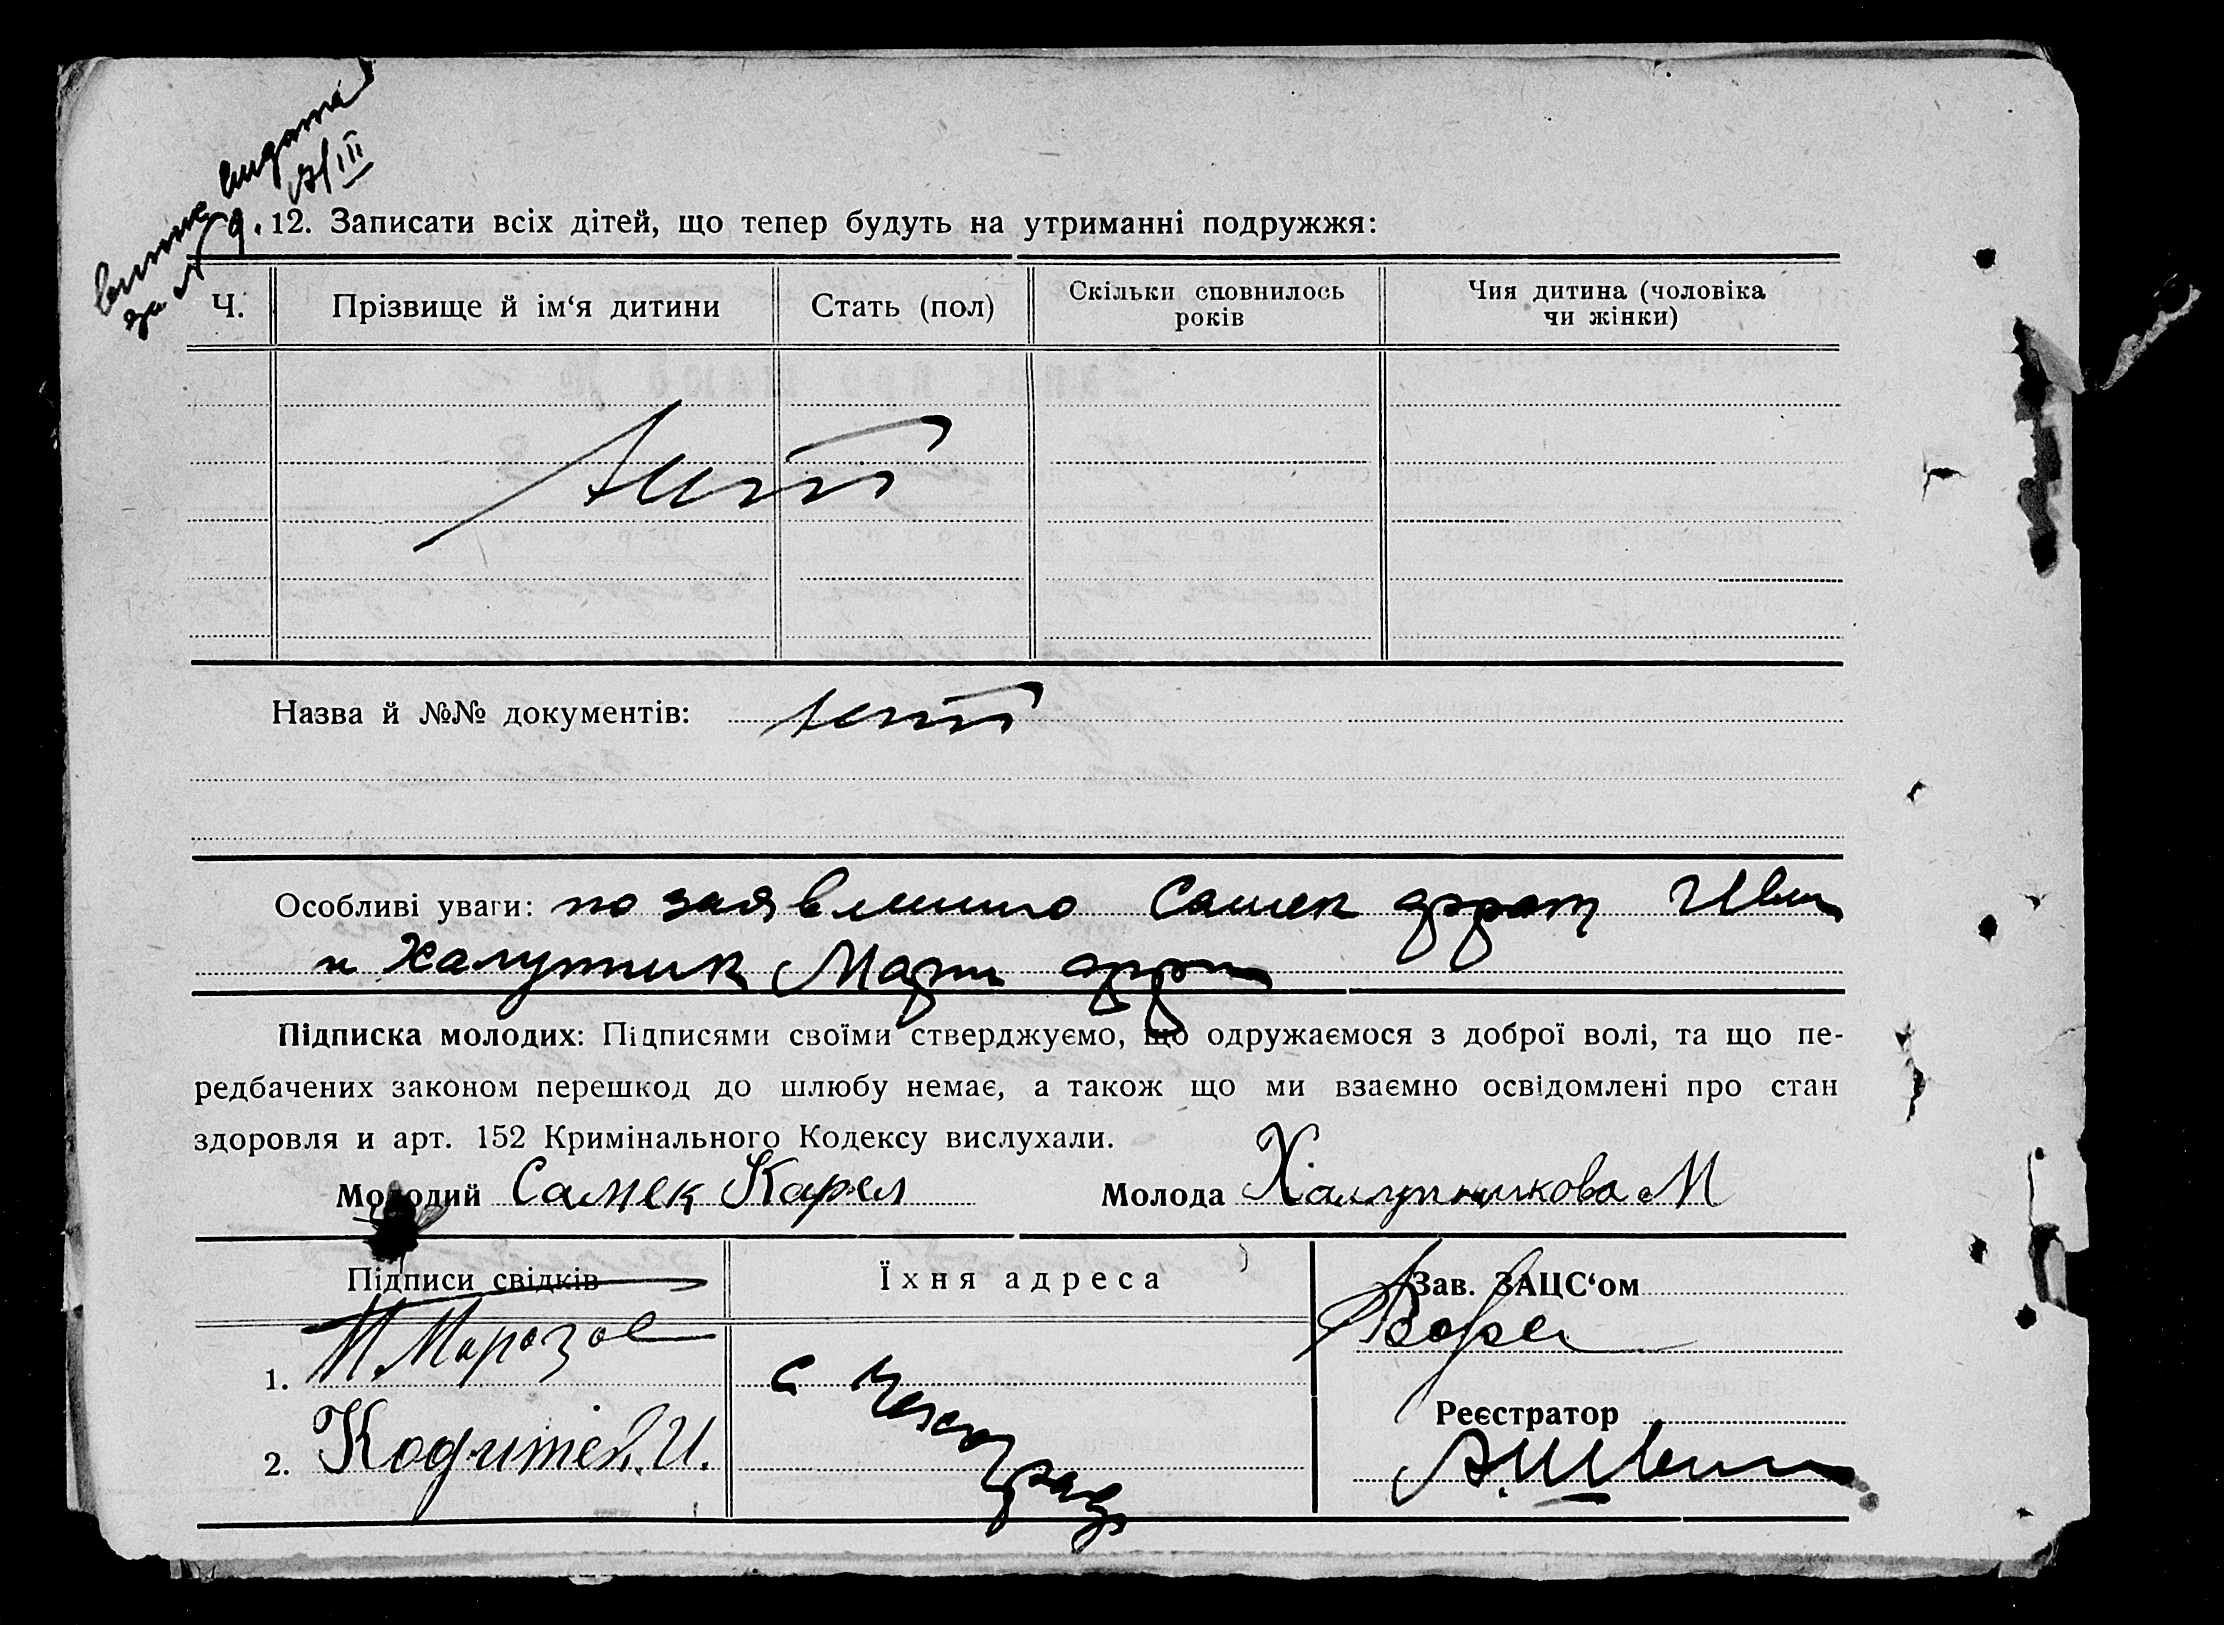 видана
за № 9.
12. Записати всіх дітей, що тепер будуть на утриманні подружжя:
Ч. Прізвище й ім‘я дитини Стать (пол) Скільки сповнилось років Чия дитина (чоловіка чи жінки)
Назва й №№ документів:
Особливі уваги: по заявлению Самек
и Халупник Мари
Підписка молодих: Підписями своїми стверджуємо, що одружаємося з доброї волі, та що пе-
редбачених законом перешкод до шлюбу немає, а також що ми взаємно освідомлені про стан
здоровля и арт. 152 Кримінального Кодексу вислухали.
Молодий Самек Карел Молода Халупникова М
Підписи свідків Їхня адреса Зав. ЗАЦС‘ом
1.
Реєстратор
2. с Чехоград